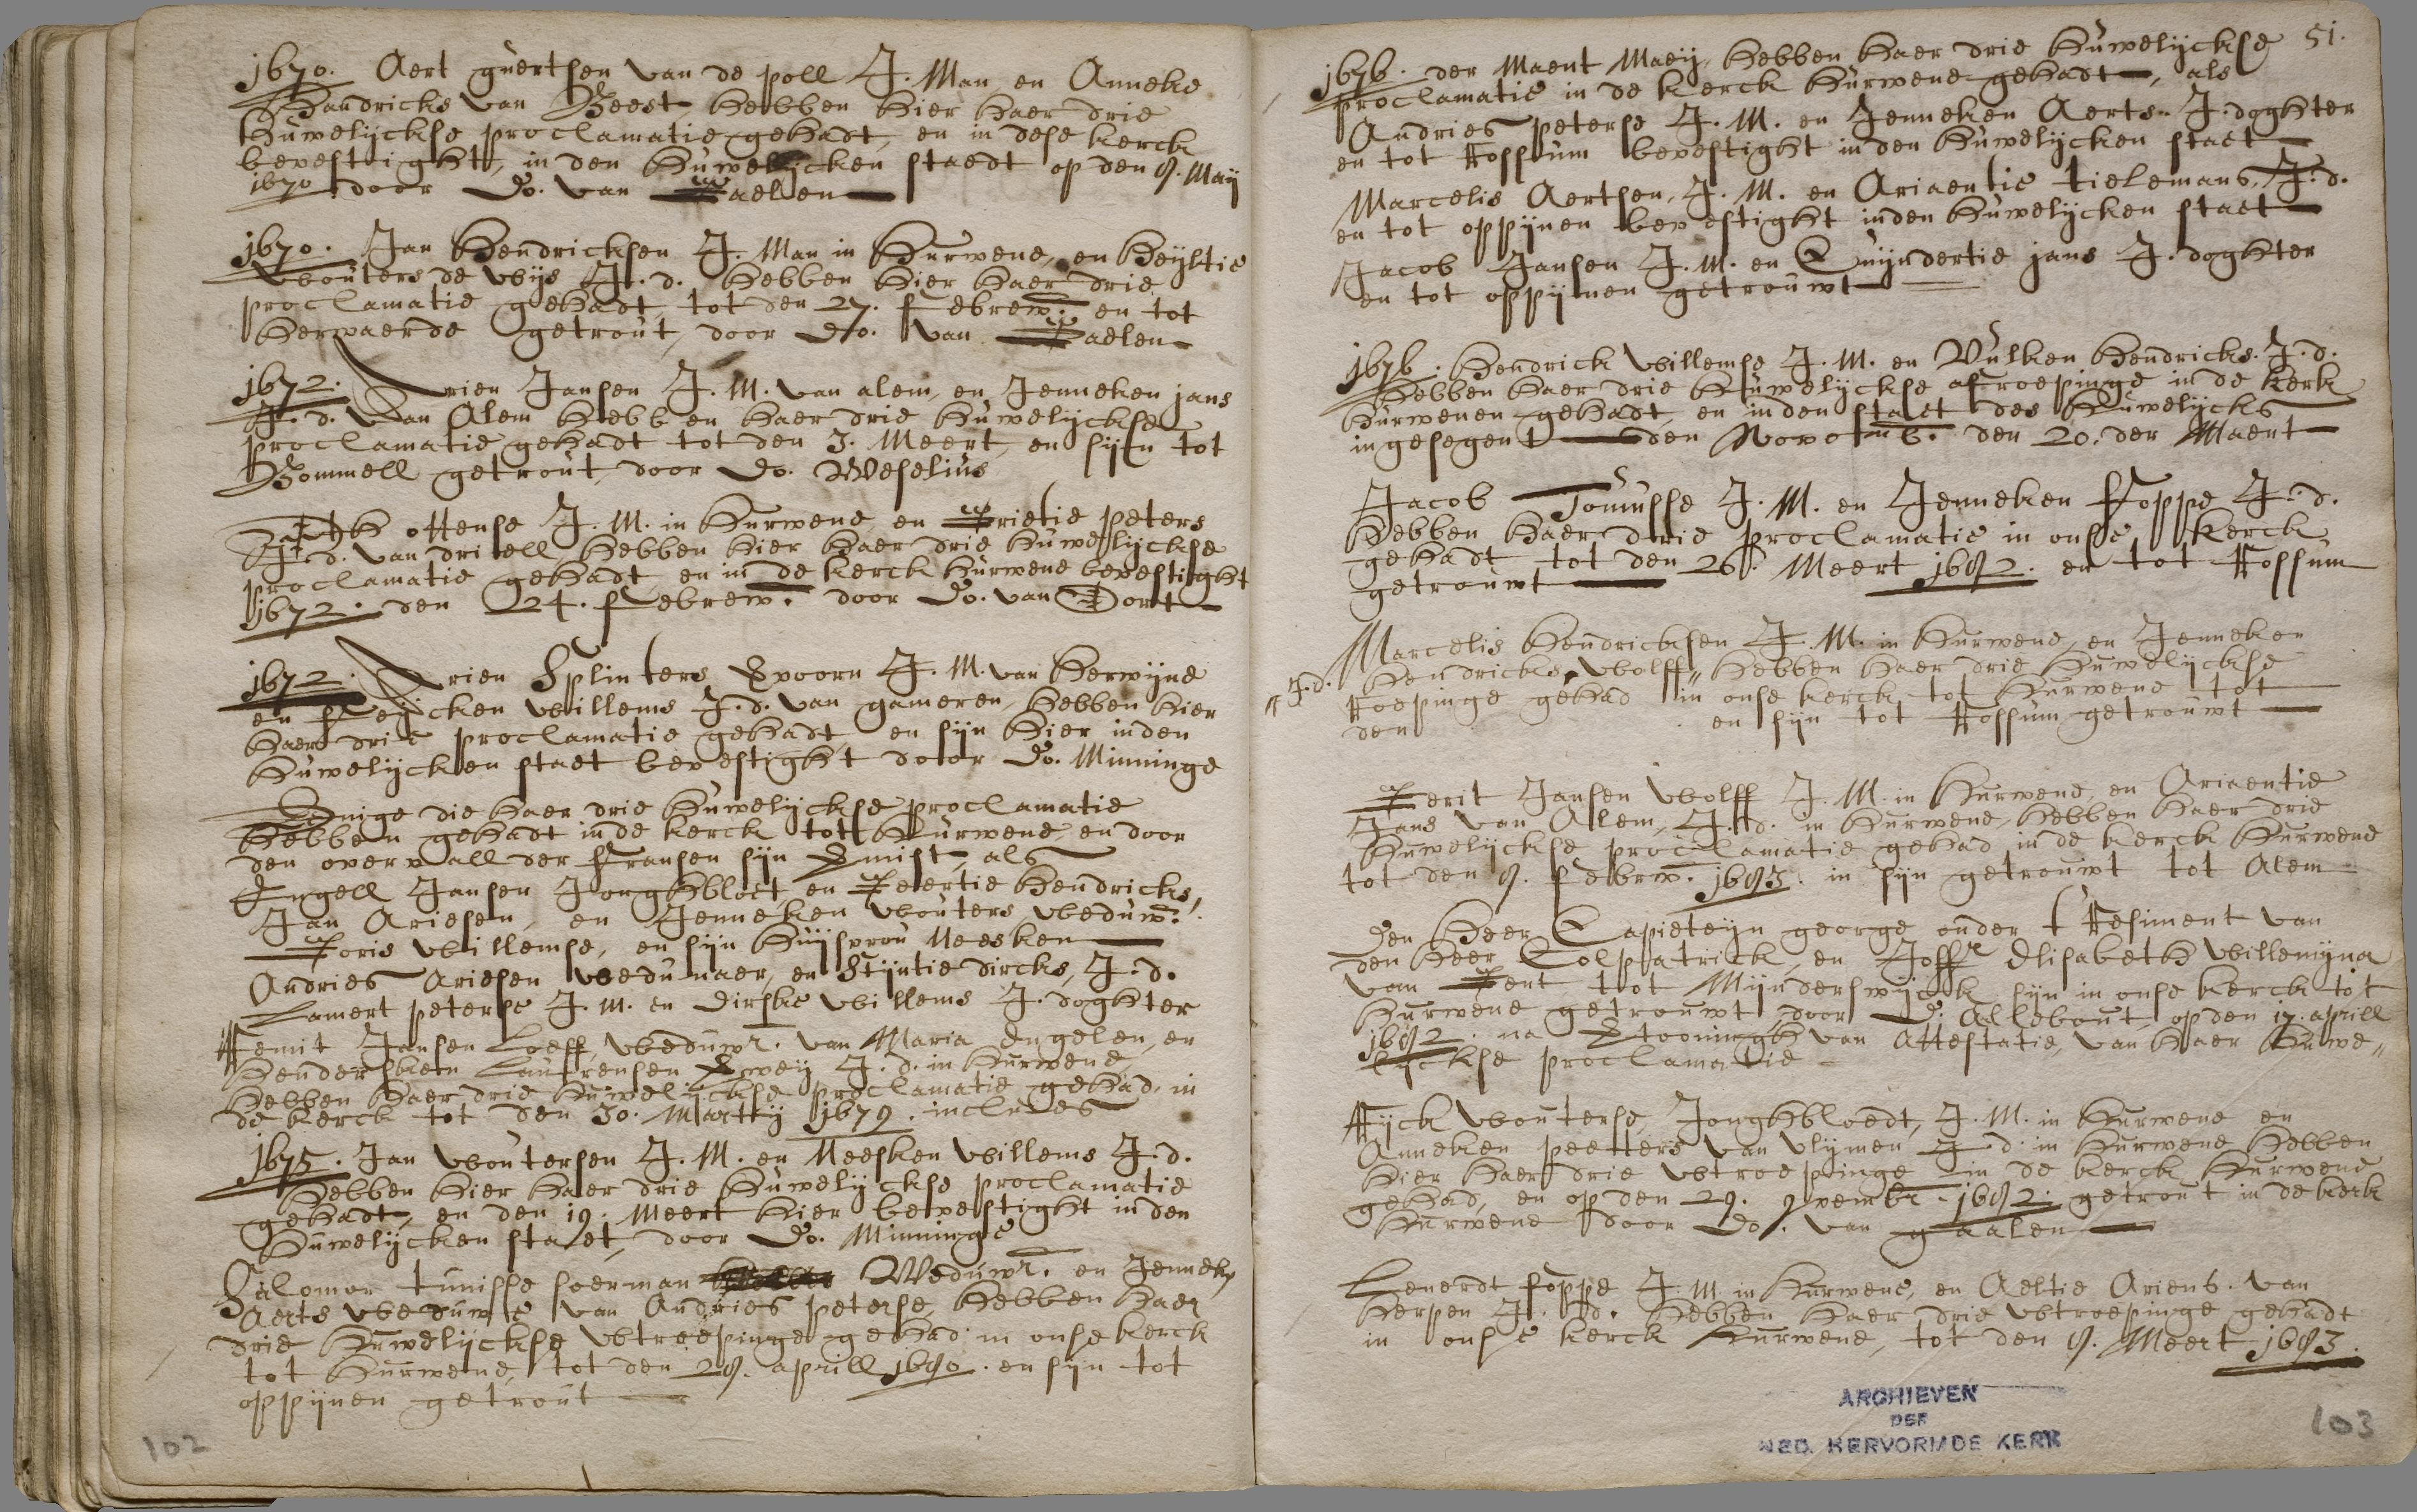 1670. Aert guertsen van de poll J. Man en Anneke
Handricks van Heest hebben hier haer drie
huwelijckse proclamatie gehadt, en in dese kerck
bevestight, in den huwelijcken staedt op den 9. Maij
1670 door Do. van Gaelen
1670. Jan Hendricksen J. Man in Hurwene, en Heijltie
Wouters de Wijs J. d. hebben hier haer drie
proclamatie gehadt, tot den 27. febrew: en tot
Herwaerde getrout, door Do. van Gaelen
1672. Arien Jansen J. M. van alem, en Jenneken jans
J. d. van Alem hebben haer drie huwelijckse
proclamatie gehadt tot den 3. Meert, en sijn tot
Bommell getrout, door Do. Weselius
ottense J. M. in Hurwene, en Grietie peters
J. d. van driell, hebben hier haer drie huwelijckse
proclamatie gehadt en in de kerck hurwene bevestight
1672. den 24. febrew. door Do. van Dort
1672. Arien Splinters Spoorn J. M. van Herwijne
en Feijcken Willems J. d. van gameren, hebben hier
haer drie proclamatie gehadt en sijn hier inden
huwelijcken staet bevestight door Do. Minninge
Enige die haer drie huwelijckse proclamatie
hebben gehadt in de kerck tot Hurwene en door
den overvall der fransen sijn gemist, als
Engell Jansen Jonghbloet, en Geertie Hendricks,
Jan Ariesen, en Jenneken Wouters, Weduw:
Goris Willemse, en sijn huijsvrou Neesken
Andries Ariesen Wedunaer, en Stijntie dircks, J. d.
Lamert peterse J. M. en dirske Willems J. doghter
Remit Jansen Loeff, Weduwr. van Maria Engelen, en
Hendersken Laurensen Sweij J. d. in Hurwene
hebben haer drie huwelijckse proclamatie gehad in
de kerck tot den 30. Martij 1679. incluses
1675. Jan Woutersen J. M. en Neesken Willems J. d.
hebben hier haer drie huwelijckse proclamatie
gehadt, en den 19. Meert hier bevestight in den
huwelijcken staet, door Do. Minninge
Salomor tunisse soerman Weduwr. en Jenneken
Aerts Weduwe van Andries peterse, hebben haer
drie huwelijckse Wtroepinge gehad in onse kerck
tot Hurwene, tot den 29. aprill 1690. en sijn tot
oppijnen getrout
102
51.
1676. der Maent Maeij, hebben haer drie huwelijckse
proclamatie in de kerck Hurwene gehadt, als
Andries peterse J. M. en Jenneken Aerts J. doghter
en tot Rossum bevestight in den huwelijcken staet
Marcelis Aertsen, J. M. en Ariaentie tielemans, J. d.
en tot oppijnen bevestight inden huwelijcken staet
Jacob Jansen J. M. en Quijndertie jans J. doghter
en tot oppijnen getrouwt
1676. Hendrick Willemse J. M. en Hendricks. J. d.
hebben haer drie huwelijckse afroepinge in de kerk
Hurwenen gehadt, en in den staet des huwelijcks
ingesegent den Novemb. den 20. der Maent
Jacob Tonusse J. M. en Jenneken Foppe J. d.
hebben haer drie proclamatie in onse kerck
gehadt tot den 26. Meert 1692. en tot Rossum
getrouwt
Marcelis Hendricksen J. M. in Hurwene, en Jenneken
Hendricks, Wolff " hebben haer drie huwelijckse
" J. d. Roepinge gehad in onse kerck tot Hurwene tot
den en sijn tot Rossum getrouwt
Gerit Jansen Wolff J. M. in Hurwene, en Ariaentie
Jans van Alem, J. d. in Hurwene, hebben haer drie
huwelijckse proclamatie gehad in de kerck Hurwene
tot den 9. febrw. 1693. in sijn getrouwt tot Alem
den Heer Capieteijn george onder t Resiment van
den Heer Colpatrick, en Joffr Elisabeth Willemijna
van Gent tot Mijnderswijck, sijn in onse kerck tot
Hurwene getrouwt door D. Allebout, op den 17. aprill
1692. na Stooningh van Attestatie, van haer huwe"
lijckse proclamatie
Rijck Wouterse, Jonghbloedt, J. M. in Hurwene en
Anneken peetters van Vlijmen J. d. in Hurwene hebben
hier haer drie Wtroepinge in de kerck Hurwene
gehad, en op den 29. 9vembr. 1692. getrout in de kerk
Hurwene door Do. van gaalen
Lenerdt foppe J. M. in Hurwene, en Aeltie Ariens. van
Herpen J. d. hebben haer drie Wtroepinge gehadt
in onse kerck Hurwene, tot den 9. Meert 1693.
ARCHIEVEN
DER
NED. HERVORMDE KERK
103